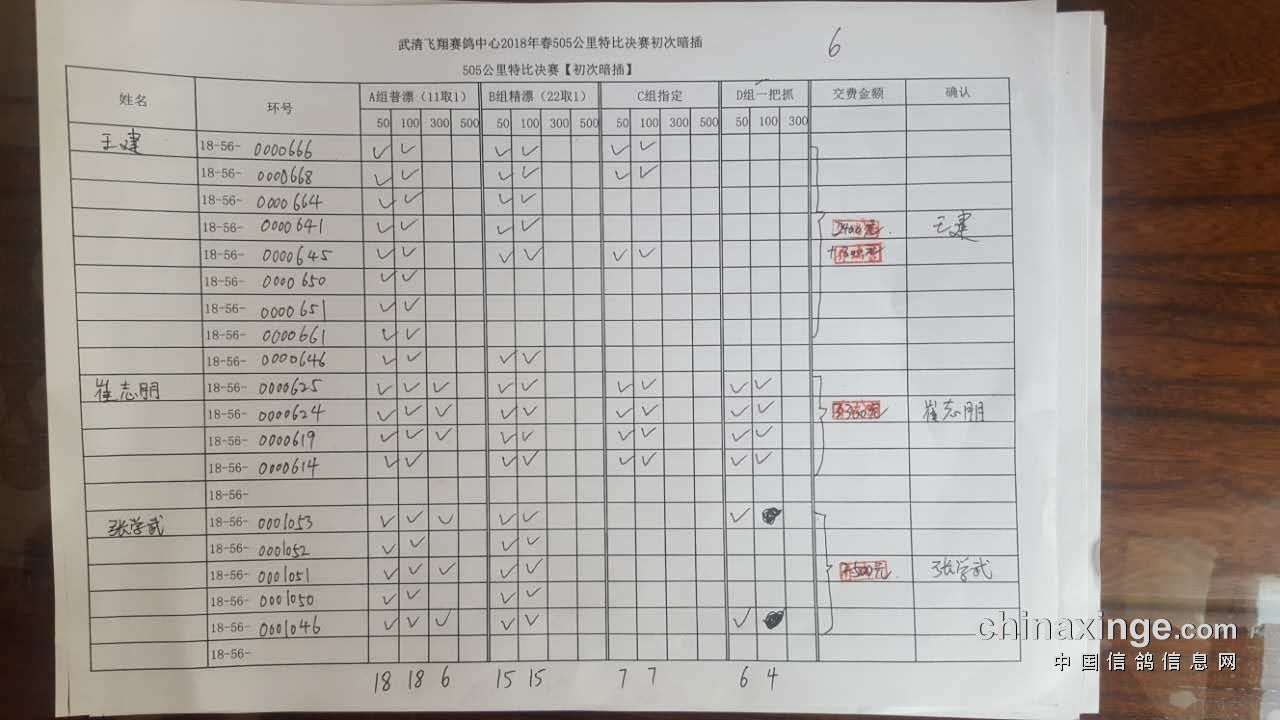 武清飞翔赛鸽中心2018年春505公里特比决赛初次暗插
6
505公里特比决赛【初次暗插】
姓名 环号 A组普漂（11取1） B组精漂（22取1） C组指定 D组一把抓 交费金额 确认
50 100 300 500 50 100 300 500 50 100 300 500 50 100 300
王建 18-56- 0000666 ✓ ✓ ✓ ✓ ✓ ✓
18-56- 0000668 ✓ ✓ ✓ ✓ ✓ ✓
18-56- 0000664 ✓ ✓ ✓ ✓
18-56- 0000641 ✓ ✓ ✓ ✓ 王建
18-56- 0000645 ✓ ✓ ✓ ✓ ✓ ✓
18-56- 0000650 ✓ ✓
18-56- 0000651 ✓ ✓
18-56- 0000661 ✓ ✓
18-56- 0000646 ✓ ✓ ✓ ✓
崔志朋 18-56- 0000625 ✓ ✓ ✓ ✓ ✓ ✓ ✓ ✓ ✓
18-56- 0000624 ✓ ✓ ✓ ✓ ✓ ✓ ✓ ✓ ✓ 崔志朋
18-56- 0000619 ✓ ✓ ✓ ✓ ✓ ✓ ✓ ✓ ✓
18-56- 0000614 ✓ ✓ ✓ ✓ ✓ ✓ ✓ ✓
18-56-
张学武 18-56- 0001053 ✓ ✓ ✓ ✓ ✓ ✓
18-56- 0001052 ✓ ✓ ✓ ✓
18-56- 0001051 ✓ ✓ ✓ ✓ ✓ 张学武
18-56- 0001050 ✓ ✓ ✓ ✓
18-56- 0001046 ✓ ✓ ✓ ✓ ✓ ✓
18-56-
18 18 6 15 15 7 7 6 4
chinaxinge.com
中国信鸽信息网